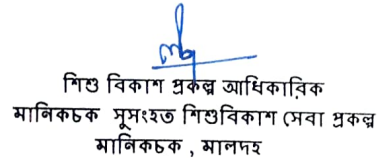 শিশু বিকাশ প্রকল্প আধিকারিক
মানিকচক সুসংহত শিশুবিকাশ সেবা প্রকল্প
মানিকচক , মালদহ